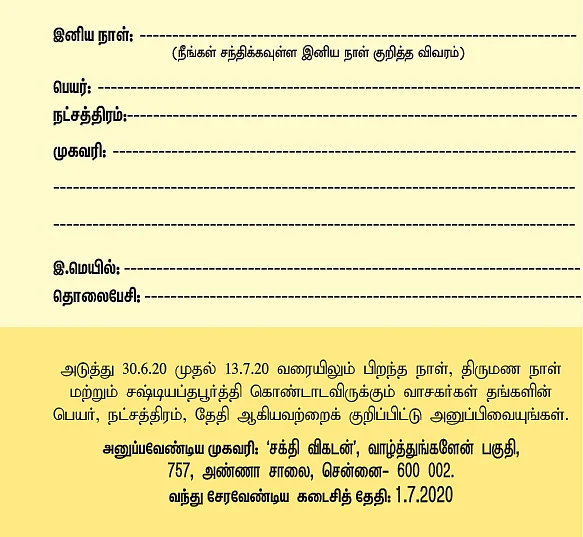 இனிய நாள்: ------------------------------------------------------------------
(நீங்கள் சந்திக்கவுள்ள இனிய நாள் குறித்த விவரம்)
பெயர்: ------------------------------------------------------------------------
நட்சத்திரம்:--------------------------------------------------------------------
முகவரி: ----------------------------------------------------------------------
-------------------------------------------------------------------------------
-------------------------------------------------------------------------------
இ.மெயில்: ---------------------------------------------------------------------
தொலைபேசி: ------------------------------------------------------------------
அடுத்து 30.6.20 முதல் 13.7.20 வரையிலும் பிறந்த நாள், திருமண நாள்
மற்றும் சஷ்டியப்தபூர்த்தி கொண்டாடவிருக்கும் வாசகர்கள் தங்களின்
பெயர், நட்சத்திரம், தேதி ஆகியவற்றைக் குறிப்பிட்டு அனுப்பிவையுங்கள்.
அனுப்பவேண்டிய முகவரி: ‘சக்தி விகடன்’, வாழ்த்துங்களேன் பகுதி,
757, அண்ணா சாலை, சென்னை- 600 002.
வந்து சேரவேண்டிய கடைசித் தேதி: 1.7.2020